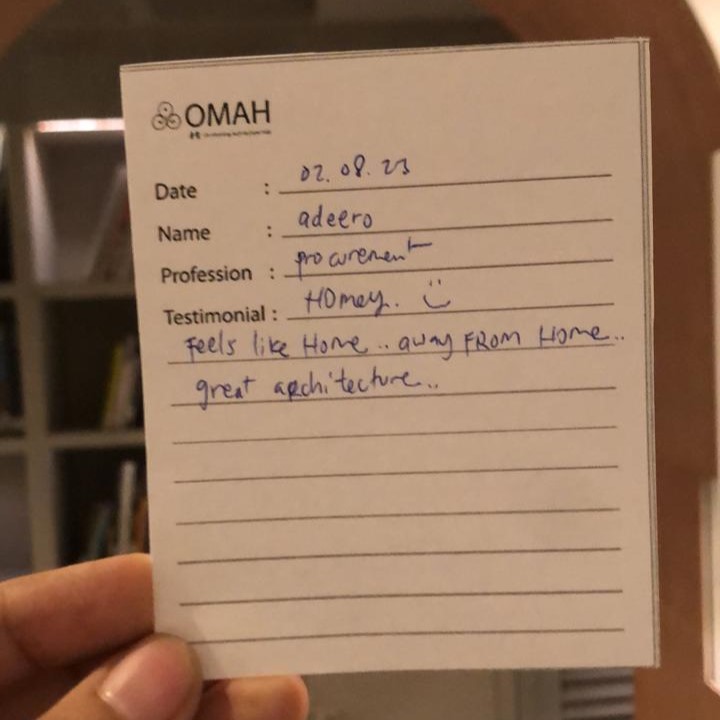 OMAH
Date : 02.08.23
Name : adeero
Profession : procurement
Testimonial : HOmey.. :)
Feels like Home .. away FROM Home..
great architecture..